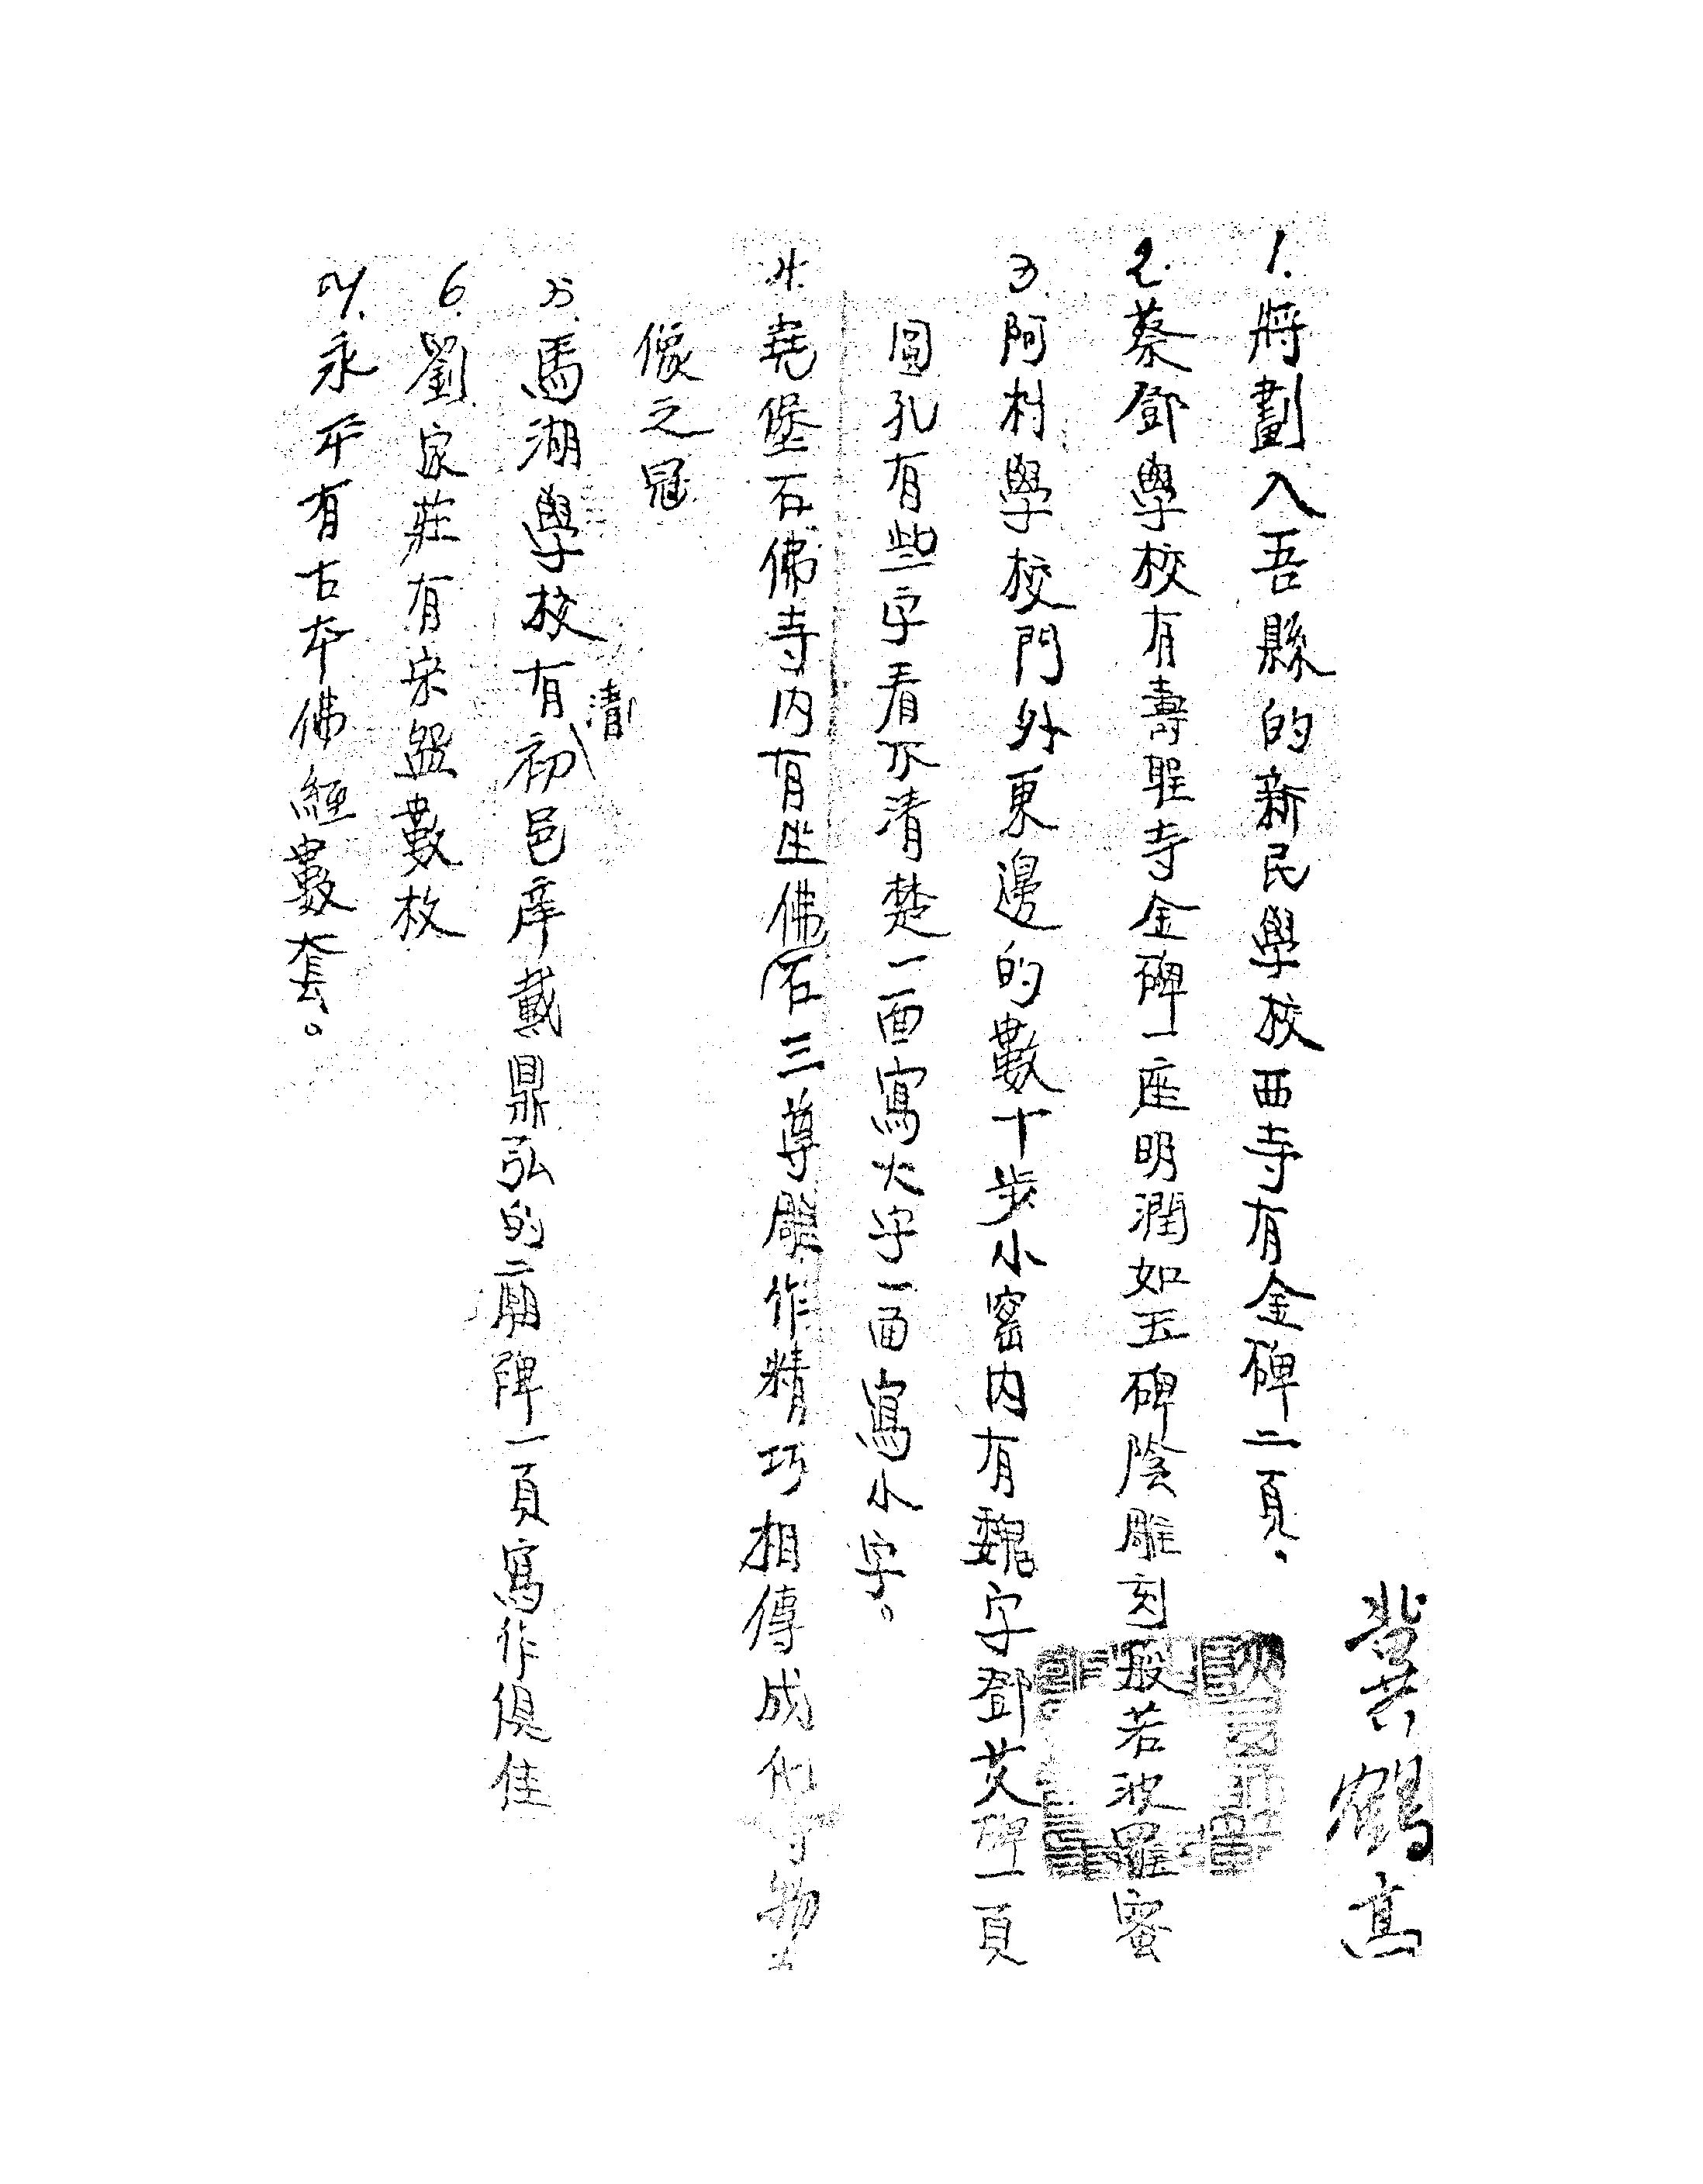 冀鶴高
1.將劃入吾縣的新民學校西寺有金碑二頁.
2.蔡鄧學校有壽聖寺金碑一座明潤如玉碑陰雕刻般若波羅蜜
3.阿村學校門外東邊的數十步小窑内有魏字鄧艾碑一頁
圓孔有些字看不清楚一面寫大字一面寫小字。
4.堯堡石佛寺内有坐佛石三尊雕作精巧相傳成
像之冠
5.馬湖學校有清初邑庠戴鼎弘的廟碑一頁寫作俱佳
6.劉家莊有宋盌數枚
7.永平有古本佛經數套。